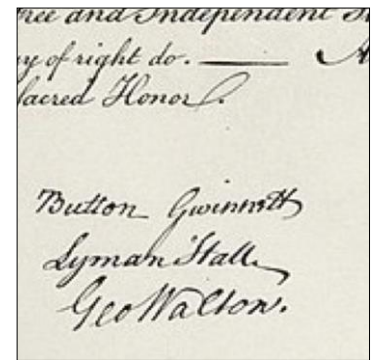 ree and Independent S
y of right do. ——— A
sacred Honor.
Button Gwinnett
Lyman Hall
Geo Walton.